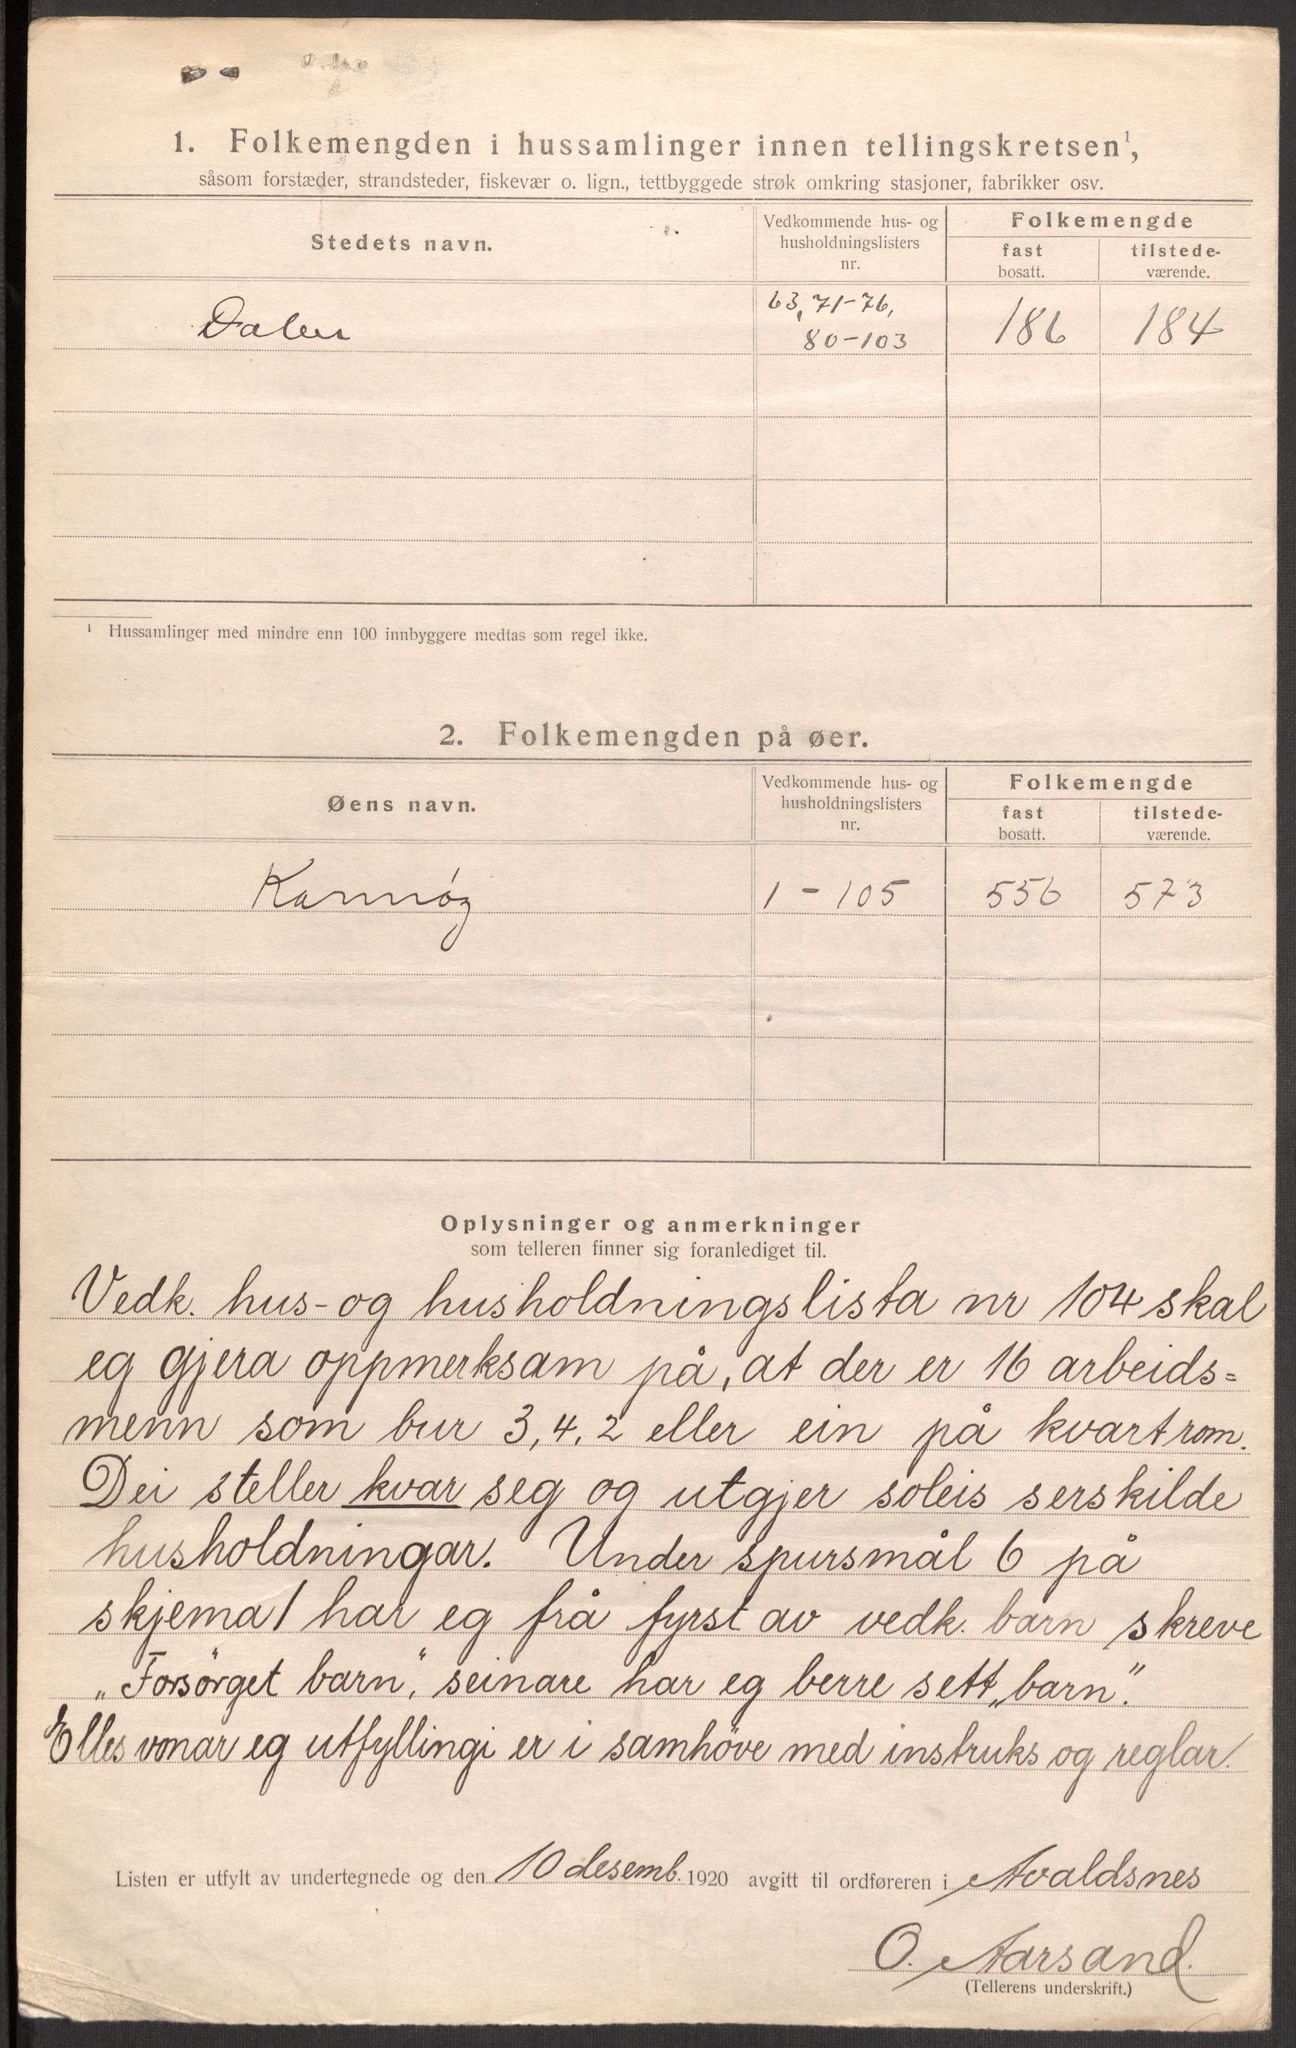 1. Folkemengden i hussamlinger innen tellingskretsen¹,
såsom forstæder, strandsteder, fiskevær o. lign., tettbyggede strøk omkring stasjoner, fabrikker osv.
Stedets navn.
Vedkommende hus- og
husholdningslisters
nr.
Folkemengde
fast
bosatt.
tilstede-
værende.
63, 71-76,
80-103
186 184
¹ Hussamlinger med mindre enn 100 innbyggere medtas som regel ikke.
2. Folkemengden på øer.
Øens navn.
Vedkommende hus- og
husholdningslisters
nr.
Folkemengde
fast
bosatt.
tilstede-
værende.
Karmöy 1 - 105 556 573
Oplysninger og anmerkninger
som telleren finner sig foranlediget til.
Vedk. hus- og husholdningslista nr 104 skal
eg gjera oppmerksam på, at der er 16 arbeids=
menn som bur 3, 4, 2 eller ein på kvart rom.
Dei steller kvar seg og utgjer soleis serskilde
husholdningar. Under spursmål 6 på
skjema 1 har eg frå fyrst av vedk. barn skreve
„Forsörget barn", seinare har eg berre sett „barn".
Elles vonar eg utfyllingi er i samhöve med instruks og reglar.
Listen er utfylt av undertegnede og den 10 desemb. 1920 avgitt til ordføreren i Avaldsnes
O. Aarsand.
(Tellerens underskrift.)